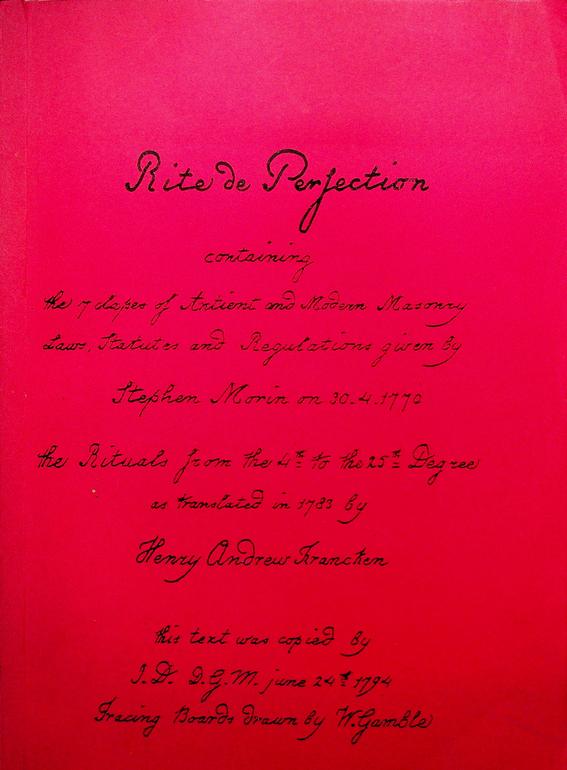 Rite de Perfection
containing
the 7 classes of Antient and Modern Masonry
Laws, Statutes and Regulations given by
Stephen Morin on 30.4.1770
the Rituals from the 4th to the 25th Degree
as translated in 1783 by
Henry Andrew Francken
this text was copied by
J.D. D.G.M. june 24th 1794
Tracing Boards drawn by W.Gamble